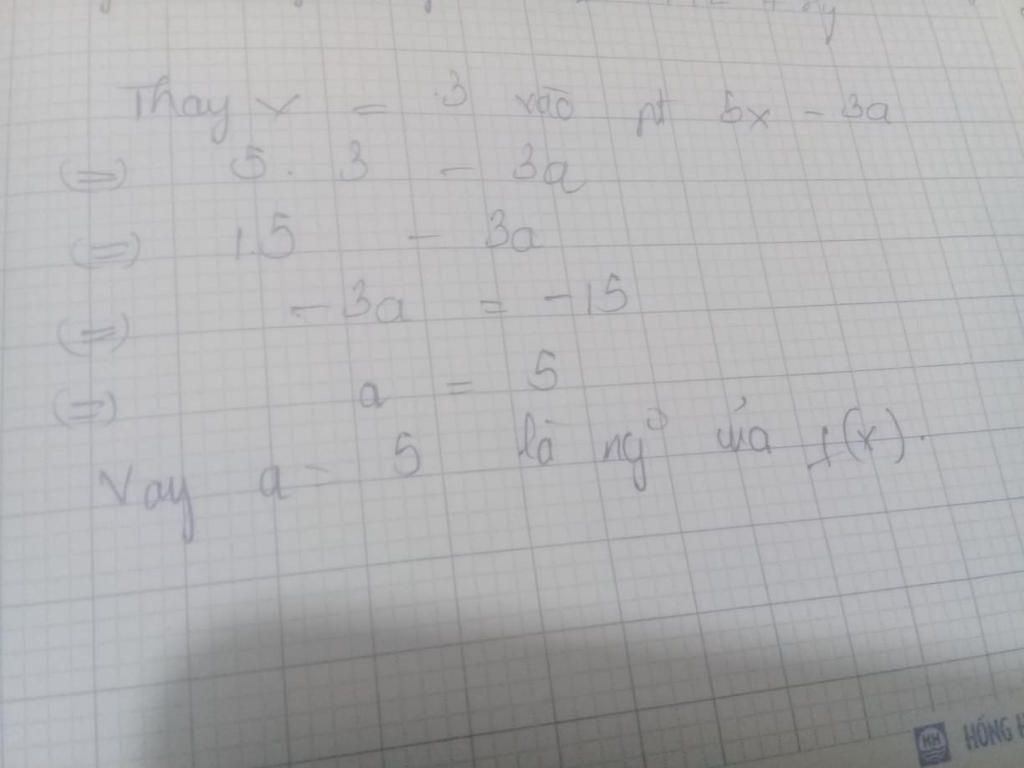 Thay x = 3 vào pt 5x - 3a
(=) 5. 3 - 3a
(=) 15 - 3a
(=) -3a = -15
(=) a = 5
Vay a = 5 là ngº của f(x).
HỒNG H